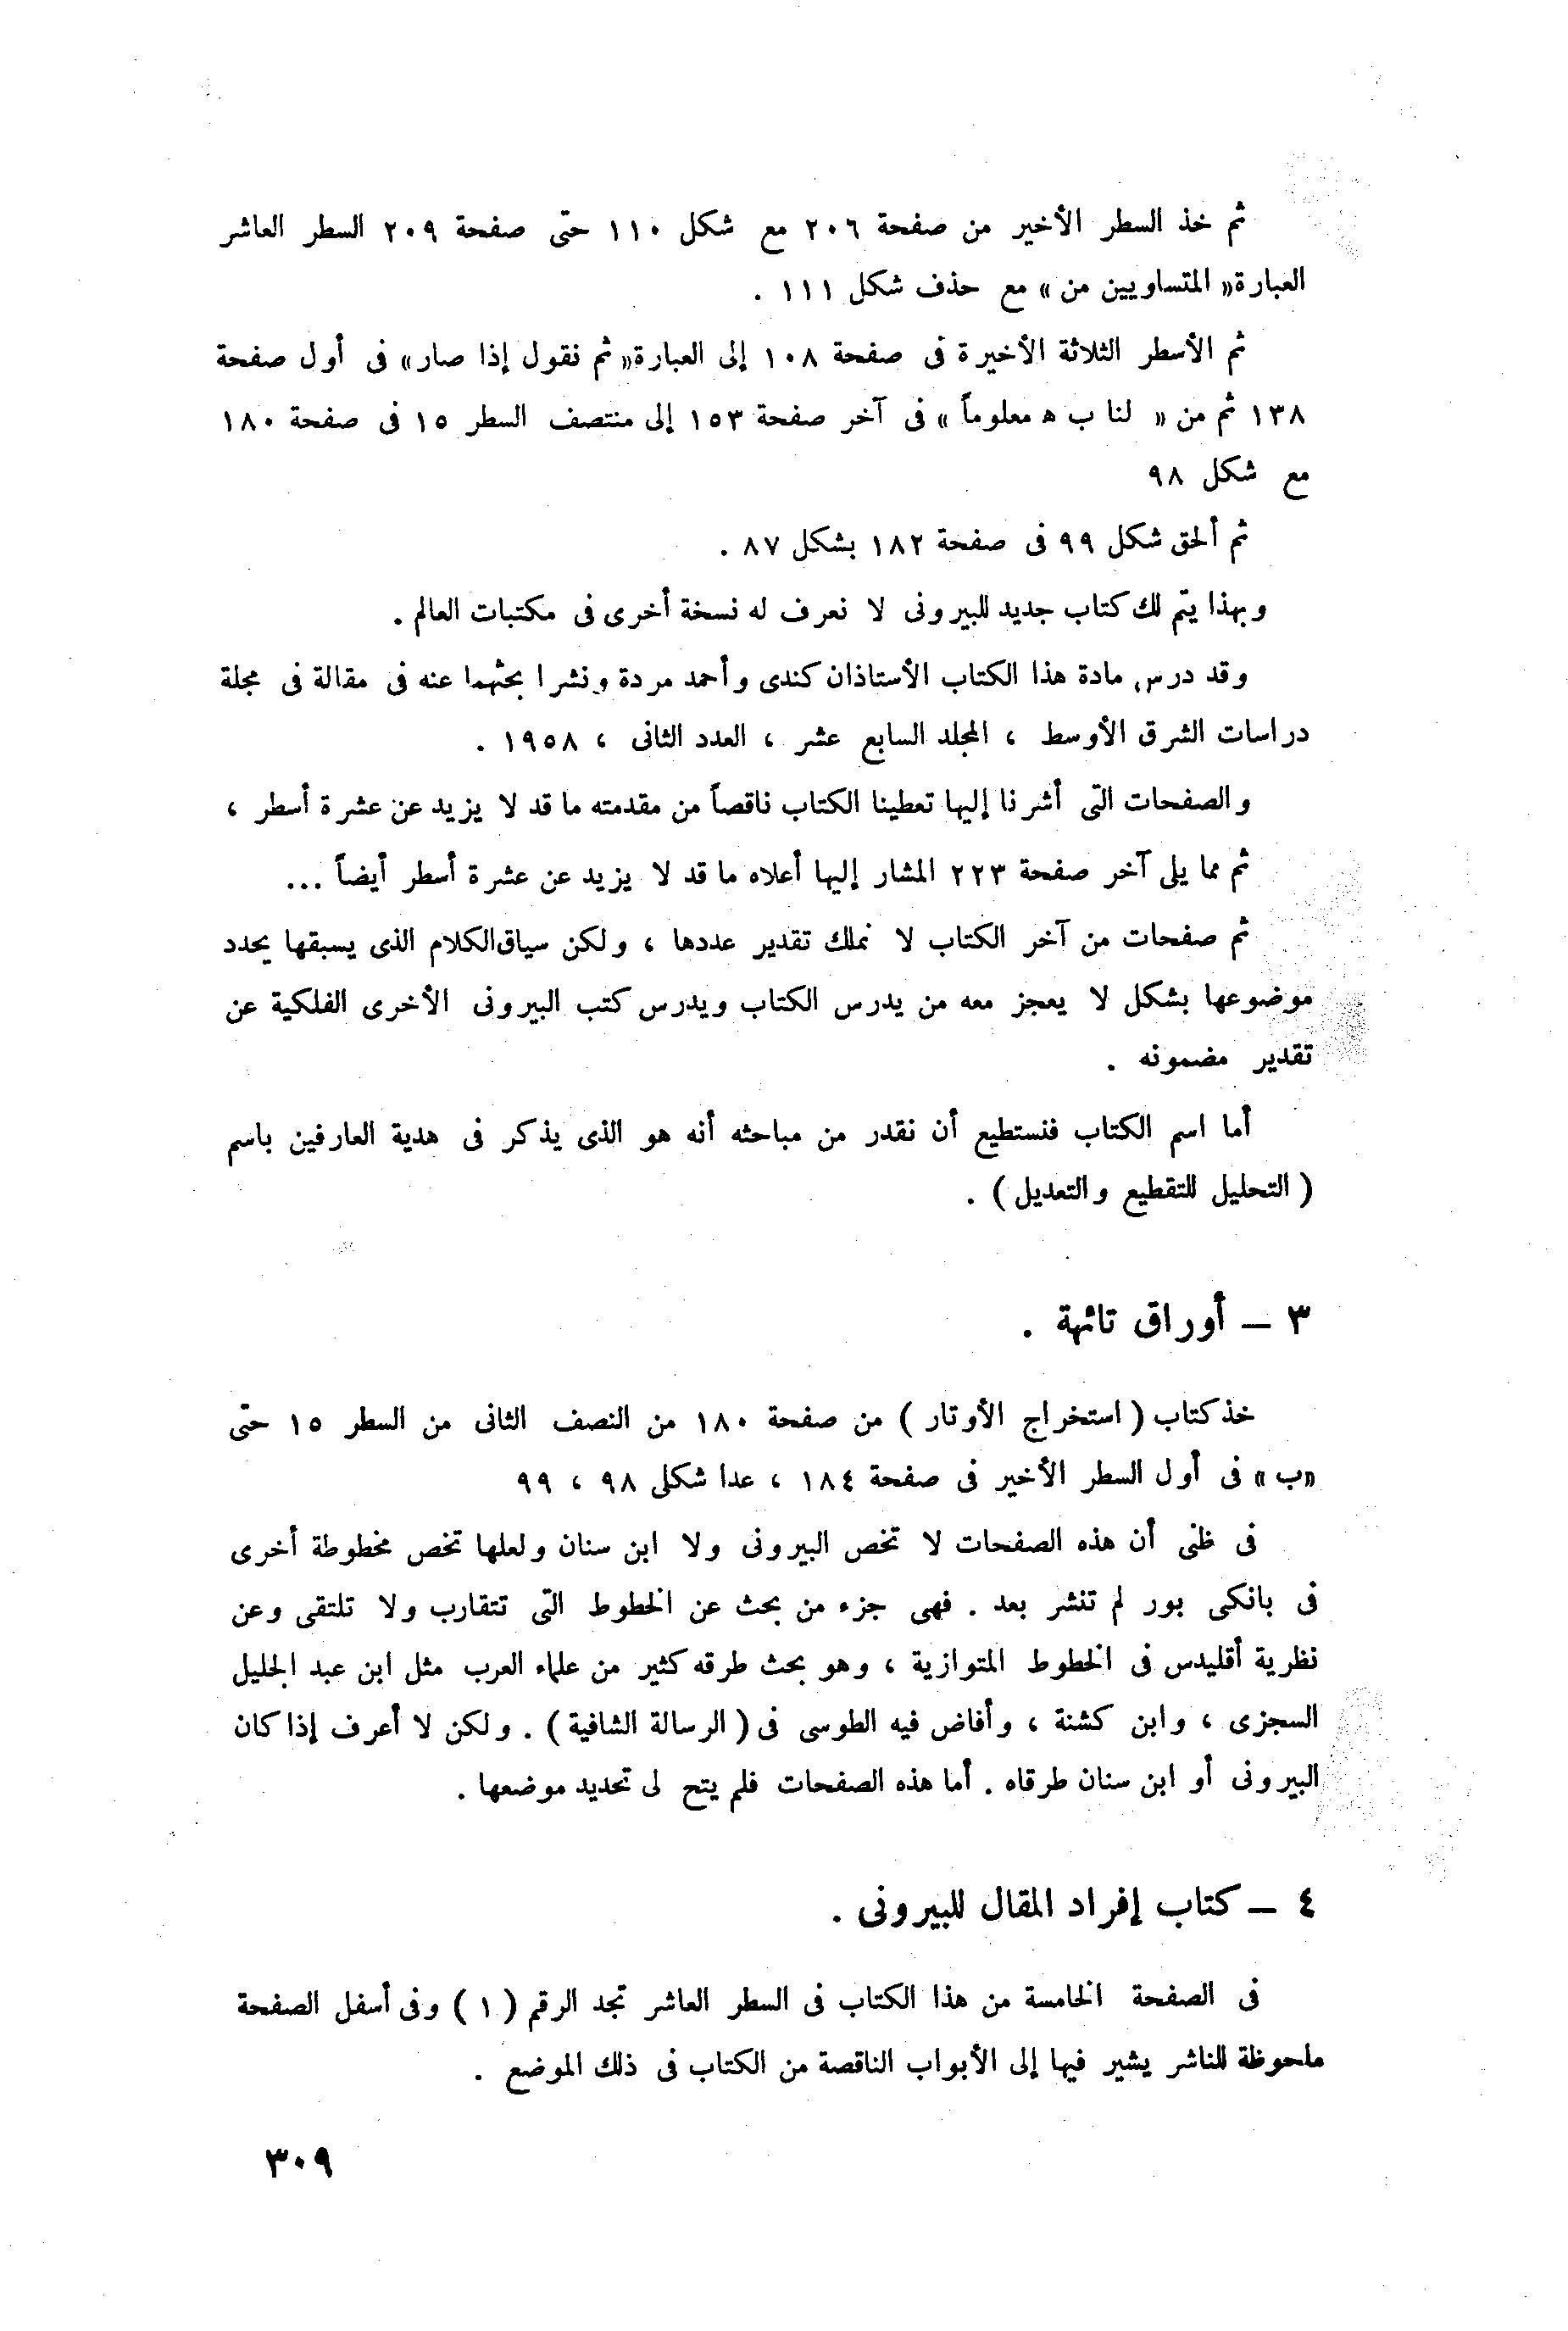 ثم خذ السطر الأخير من صفحة ٢٠٦ مع شكل ١١٠ حتى صفحة ٢٠٩ السطر العاشر
العبارة « المتساويين من » مع حذف شكل ١١١ .
ثم الأسطر الثلاثة الأخيرة فى صفحة ١٠٨ إلى العبارة « ثم نقول إذا صار » فى أول صفحة
١٣٨ ثم من « لنا ب ه معلوماً » فى آخر صفحة ١٥٣ إلى منتصف السطر ١٥ فى صفحة ١٨٠
مع شكل ٩٨
ثم ألحق شكل ٩٩ فى صفحة ١٨٢ بشكل ٨٧ .
وبهذا يتم لك كتاب جديد للبيرونى لا نعرف له نسخة أخرى فى مكتبات العالم .
وقد درس مادة هذا الكتاب الأستاذان كندى وأحمد مردة ونشرا بحثهما عنه فى مقالة فى مجلة
دراسات الشرق الأوسط ، المجلد السابع عشر ، العدد الثانى ، ١٩٥٨ .
والصفحات التى أشرنا إليها تعطينا الكتاب ناقصاً من مقدمته ما قد لا يزيد عن عشرة أسطر ،
ثم مما يلى آخر صفحة ٢٢٣ المشار إليها أعلاه ما قد لا يزيد عن عشرة أسطر أيضاً ...
ثم صفحات من آخر الكتاب لا نملك تقدير عددها ، ولكن سياق الكلام الذى يسبقها يحدد
موضوعها بشكل لا يعجز معه من يدرس الكتاب ويدرس كتب البيرونى الأخرى الفلكية عن
تقدير مضمونه .
أما اسم الكتاب فنستطيع أن نقدر من مباحثه أنه هو الذى يذكر فى هدية العارفين باسم
( التحليل للتقطيع والتعديل ) .
٣ – أوراق تائهة .
خذ كتاب ( استخراج الأوتار ) من صفحة ١٨٠ من النصف الثانى من السطر ١٥ حتى
«ب» فى أول السطر الأخير فى صفحة ١٨٤ ، عدا شكلى ٩٨ ، ٩٩
فى ظنى أن هذه الصفحات لا تخص البيرونى ولا ابن سنان ولعلها تخص مخطوطة أخرى
فى بانكى بور لم تنشر بعد . فهى جزء من بحث عن الخطوط التى تتقارب ولا تلتقى وعن
نظرية أقليدس فى الخطوط المتوازية ، وهو بحث طرقه كثير من علماء العرب مثل ابن عبد الجليل
السجزى ، وابن كشنة ، وأفاض فيه الطوسى فى ( الرسالة الشافية ) . ولكن لا أعرف إذا كان
البيرونى أو ابن سنان طرقاه . أما هذه الصفحات فلم يتح لى تحديد موضعها .
٤ – كتاب إفراد المقال للبيرونى .
فى الصفحة الخامسة من هذا الكتاب فى السطر العاشر تجد الرقم ( ١ ) وفى أسفل الصفحة
ملحوظة للناشر يشير فيها إلى الأبواب الناقصة من الكتاب فى ذلك الموضع .
٣٠٩